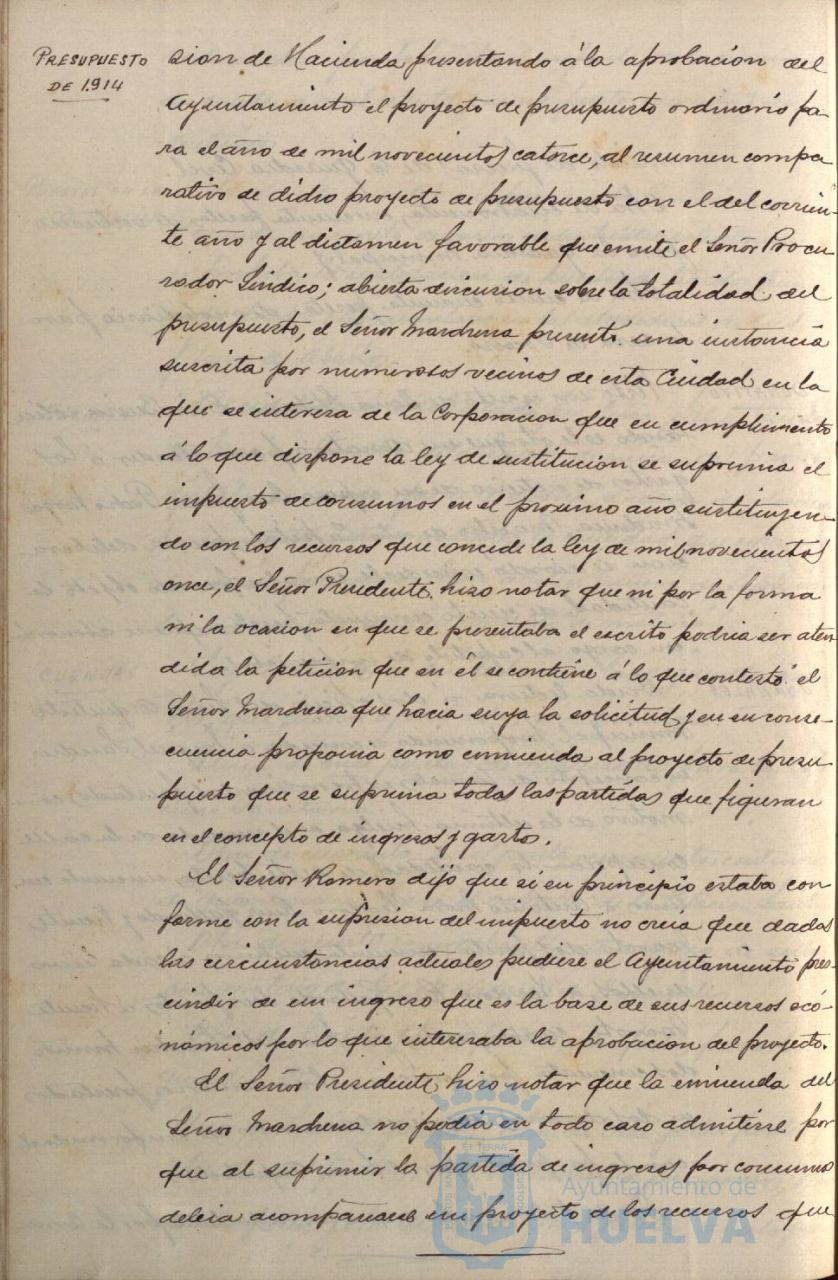 PRESUPUESTO
DE 1.914
sion de Hacienda presentando á la aprobacion del
Ayuntamiento el proyecto de presupuesto ordinario pa-
ra el año de mil novecientos catorce, al resumen compa
rativo de dicho proyecto de presupuesto con el del corrien-
te año y al dictamen favorable que emite el Señor Procu
rador Sindico; abierta discusion sobre la totalidad del
presupuesto, el Señor Marchena presentó una instancia
suscrita por númerosos vecinos de esta Ciudad en la
que se interesa de la Corporacion que en cumplimiento
á lo que dispone la ley de sustitucion se suprima el
impuesto de consumos en el proximo año sustituyen-
do con los recursos que concede la ley de mil novecientos
once, el Señor Presidente hizo notar que ni por la forma
ni la ocasion en que se presentaba el escrito podria ser aten
dida la peticion que en él se contiene á lo que contestó el
Señor Marchena que hacia suya la solicitud y en su conse-
cuencia proponia como enmienda al proyecto de presu-
puesto que se suprima todas las partidas que figuran
en el concepto de ingresos y gastos.
El Señor Romero dijo que si en principio estaba con
forme con la supresion del impuesto no creia que dadas
las circunstancias actuales pudiese el Ayuntamiento pres-
cindir de un ingreso que es la base de sus recursos ecó-
nómicos por lo que interesaba la aprobacion del proyecto.
El Señor Presidente hizo notar que la enmienda del
Señor Marchena no podia en todo caso admitirse por
que al suprimir la partida de ingresos por consumos
debia acompañarse un proyecto de los recursos que
Ayuntamiento de
HUELVA